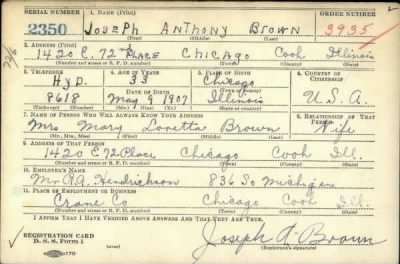 SERIAL NUMBER 1. NAME (Print) ORDER NUMBER (Print)
2350 JOSEPH ANTHONY BROWN 3935
(First) (Middle) (Last)
2. ADDRESS (Print)
1420 E. 72 PLACE CHICAGO Cook Illinois
(Number and street or R. F. D. number) (Town) (County) (State)
3. TELEPHONE 4. AGE IN YEARS 5. PLACE OF BIRTH 6. COUNTRY OF CITIZENSHIP
Hyp. 33 Chicago
(Town or county)
8618 DATE OF BIRTH Illinois U.S.A.
May 6 1907
(Exchange) (Number) (Mo.) (Day) (Yr.) (State or country)
7. NAME OF PERSON WHO WILL ALWAYS KNOW YOUR ADDRESS 8. RELATIONSHIP OF THAT PERSON
Mrs Mary Loretta Brown Wife
(Mr., Mrs., Miss) (First) (Middle) (Last)
9. ADDRESS OF THAT PERSON
1420 E 72 Place Chicago Cook Ill.
(Number and street or R. F. D. number) (Town) (County) (State)
10. EMPLOYER'S NAME
Mr. Hendrickson 836 So Michigan
11. PLACE OF EMPLOYMENT OR BUSINESS
Crane Co Chicago Cook Ill.
(Number and street or R. F. D. number) (Town) (County) (State)
I AFFIRM THAT I HAVE VERIFIED ABOVE ANSWERS AND THAT THEY ARE TRUE.
REGISTRATION CARD
D. S. S. Form 1
Joseph A. Brown